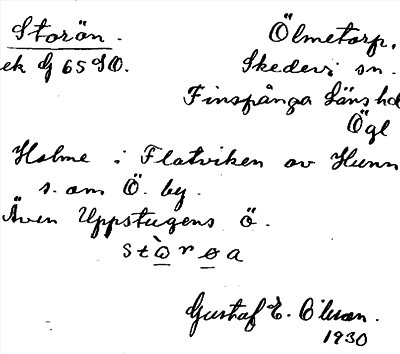 Storön.
Ölmetorp.
ek G 65 SO.
Skedevi sn.
Finspånga läns hd
Ögl
Holme i Flatviken av Hunn
s. om Ö. by.
Även Uppstugens ö.
Gustaf E. Olsson.
1930